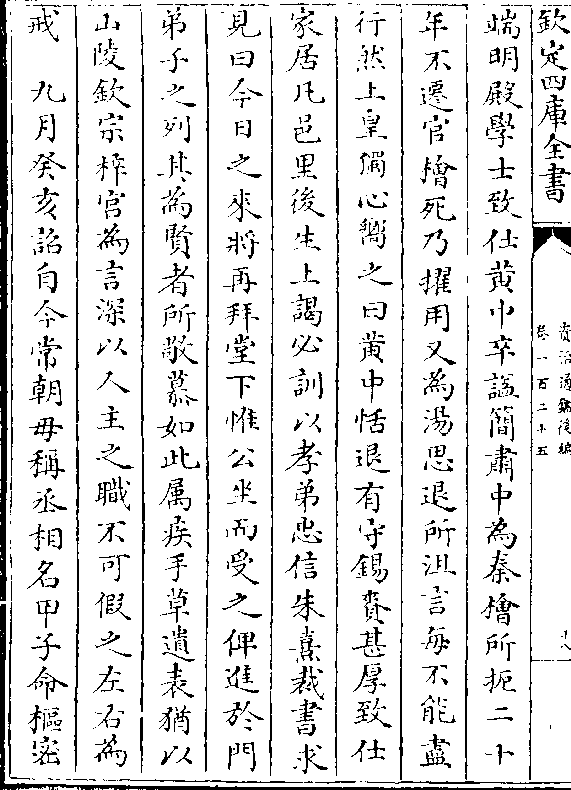 欽定四庫全書
資治通鑑後編
卷一百二十五
十八
端明殿學士致仕黄中卒諡簡肅中為秦檜所扼二十
年不遷官檜死乃擢用又為湯思退所沮言每不能盡
行然上皇獨心嚮之曰黄中恬退有守錫賚甚厚致仕
家居凡邑里後生上謁必訓以孝弟忠信朱熹裁書求
見曰今日之來將再拜堂下惟公坐而受之俾進於門
弟子之列其為賢者所敬慕如此属疾手草遺表猶以
山陵欽宗梓宫為言深以人主之職不可假之左右為
戒　九月癸亥詔自今常朝毋稱丞相名甲子命樞宻